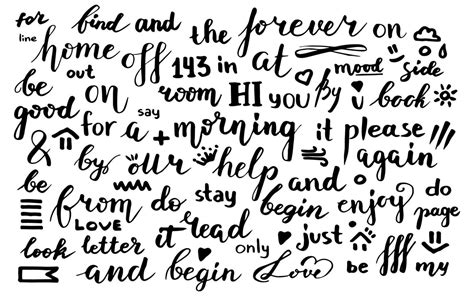 for find and the forever on
line home off 143 in at mood side
be out on room HI you By i book
good say for a + morning it please
& by our help again
be from do stay and enjoy do
LOVE it read begin page
look letter only just
and begin Love be my